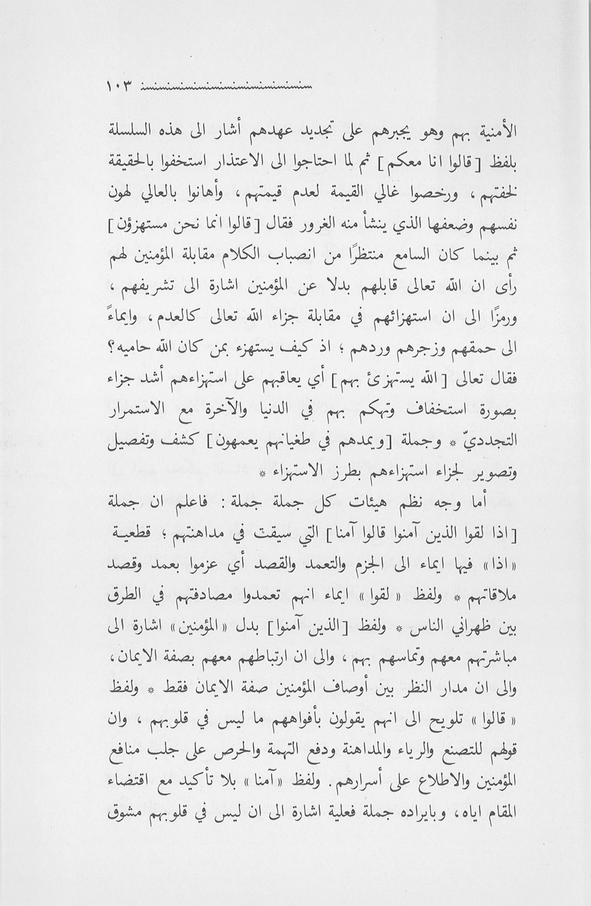 ١٠٣
الأمنية بهم وهو يجبرهم على تجديد عهدهم أشار الى هذه السلسلة
بلفظ [قالوا انا معكم] ثم لما احتاجوا الى الاعتذار استخفوا بالحقيقة
لخفتهم، ورخصوا غالي القيمة لعدم قيمتهم، وأهانوا بالعالي لهون
نفسهم وضعفها الذي ينشأ منه الغرور فقال [قالوا انما نحن مستهزؤن]
ثم بينما كان السامع منتظرًا من انصباب الكلام مقابلة المؤمنين لهم
رأى ان الله تعالى قابلهم بدلا عن المؤمنين اشارة الى تشريفهم،
ورمزًا الى ان استهزائهم في مقابلة جزاء الله تعالى كالعدم، وايماءً
الى حمقهم وزجرهم وردهم؛ اذ كيف يستهزء بمن كان الله حاميه؟
فقال تعالى [الله يستهزئ بهم] أي يعاقبهم على استهزاءهم أشد جزاء
بصورة استخفاف وتهكم بهم في الدنيا والآخرة مع الاستمرار
التجدديّ * وجملة [ويمدهم في طغيانهم يعمهون] كشف وتفصيل
وتصوير لجزاء استهزاءهم بطرز الاستهزاء *
أما وجه نظم هيئات كل جملة جملة: فاعلم ان جملة
[اذا لقوا الذين آمنوا قالوا آمنا] التي سيقت في مداهنتهم؛ قطعية
«اذا» فيها ايماء الى الجزم والتعمد والقصد أي عزموا بعمد وقصد
ملاقاتهم * ولفظ «لقوا» ايماء انهم تعمدوا مصادفتهم في الطرق
بين ظهراني الناس * ولفظ [الذين آمنوا] بدل «المؤمنين» اشارة الى
مباشرتهم معهم وتماسهم بهم، والى ان ارتباطهم معهم بصفة الايمان،
والى ان مدار النظر بين أوصاف المؤمنين صفة الايمان فقط * ولفظ
«قالوا» تلويح الى انهم يقولون بأفواههم ما ليس في قلوبهم، وان
قولهم للتصنع والرياء والمداهنة ودفع التهمة والحرص على جلب منافع
المؤمنين والاطلاع على أسرارهم. ولفظ «آمنا» بلا تأكيد مع اقتضاء
المقام اياه، وبايراده جملة فعلية اشارة الى ان ليس في قلوبهم مشوق